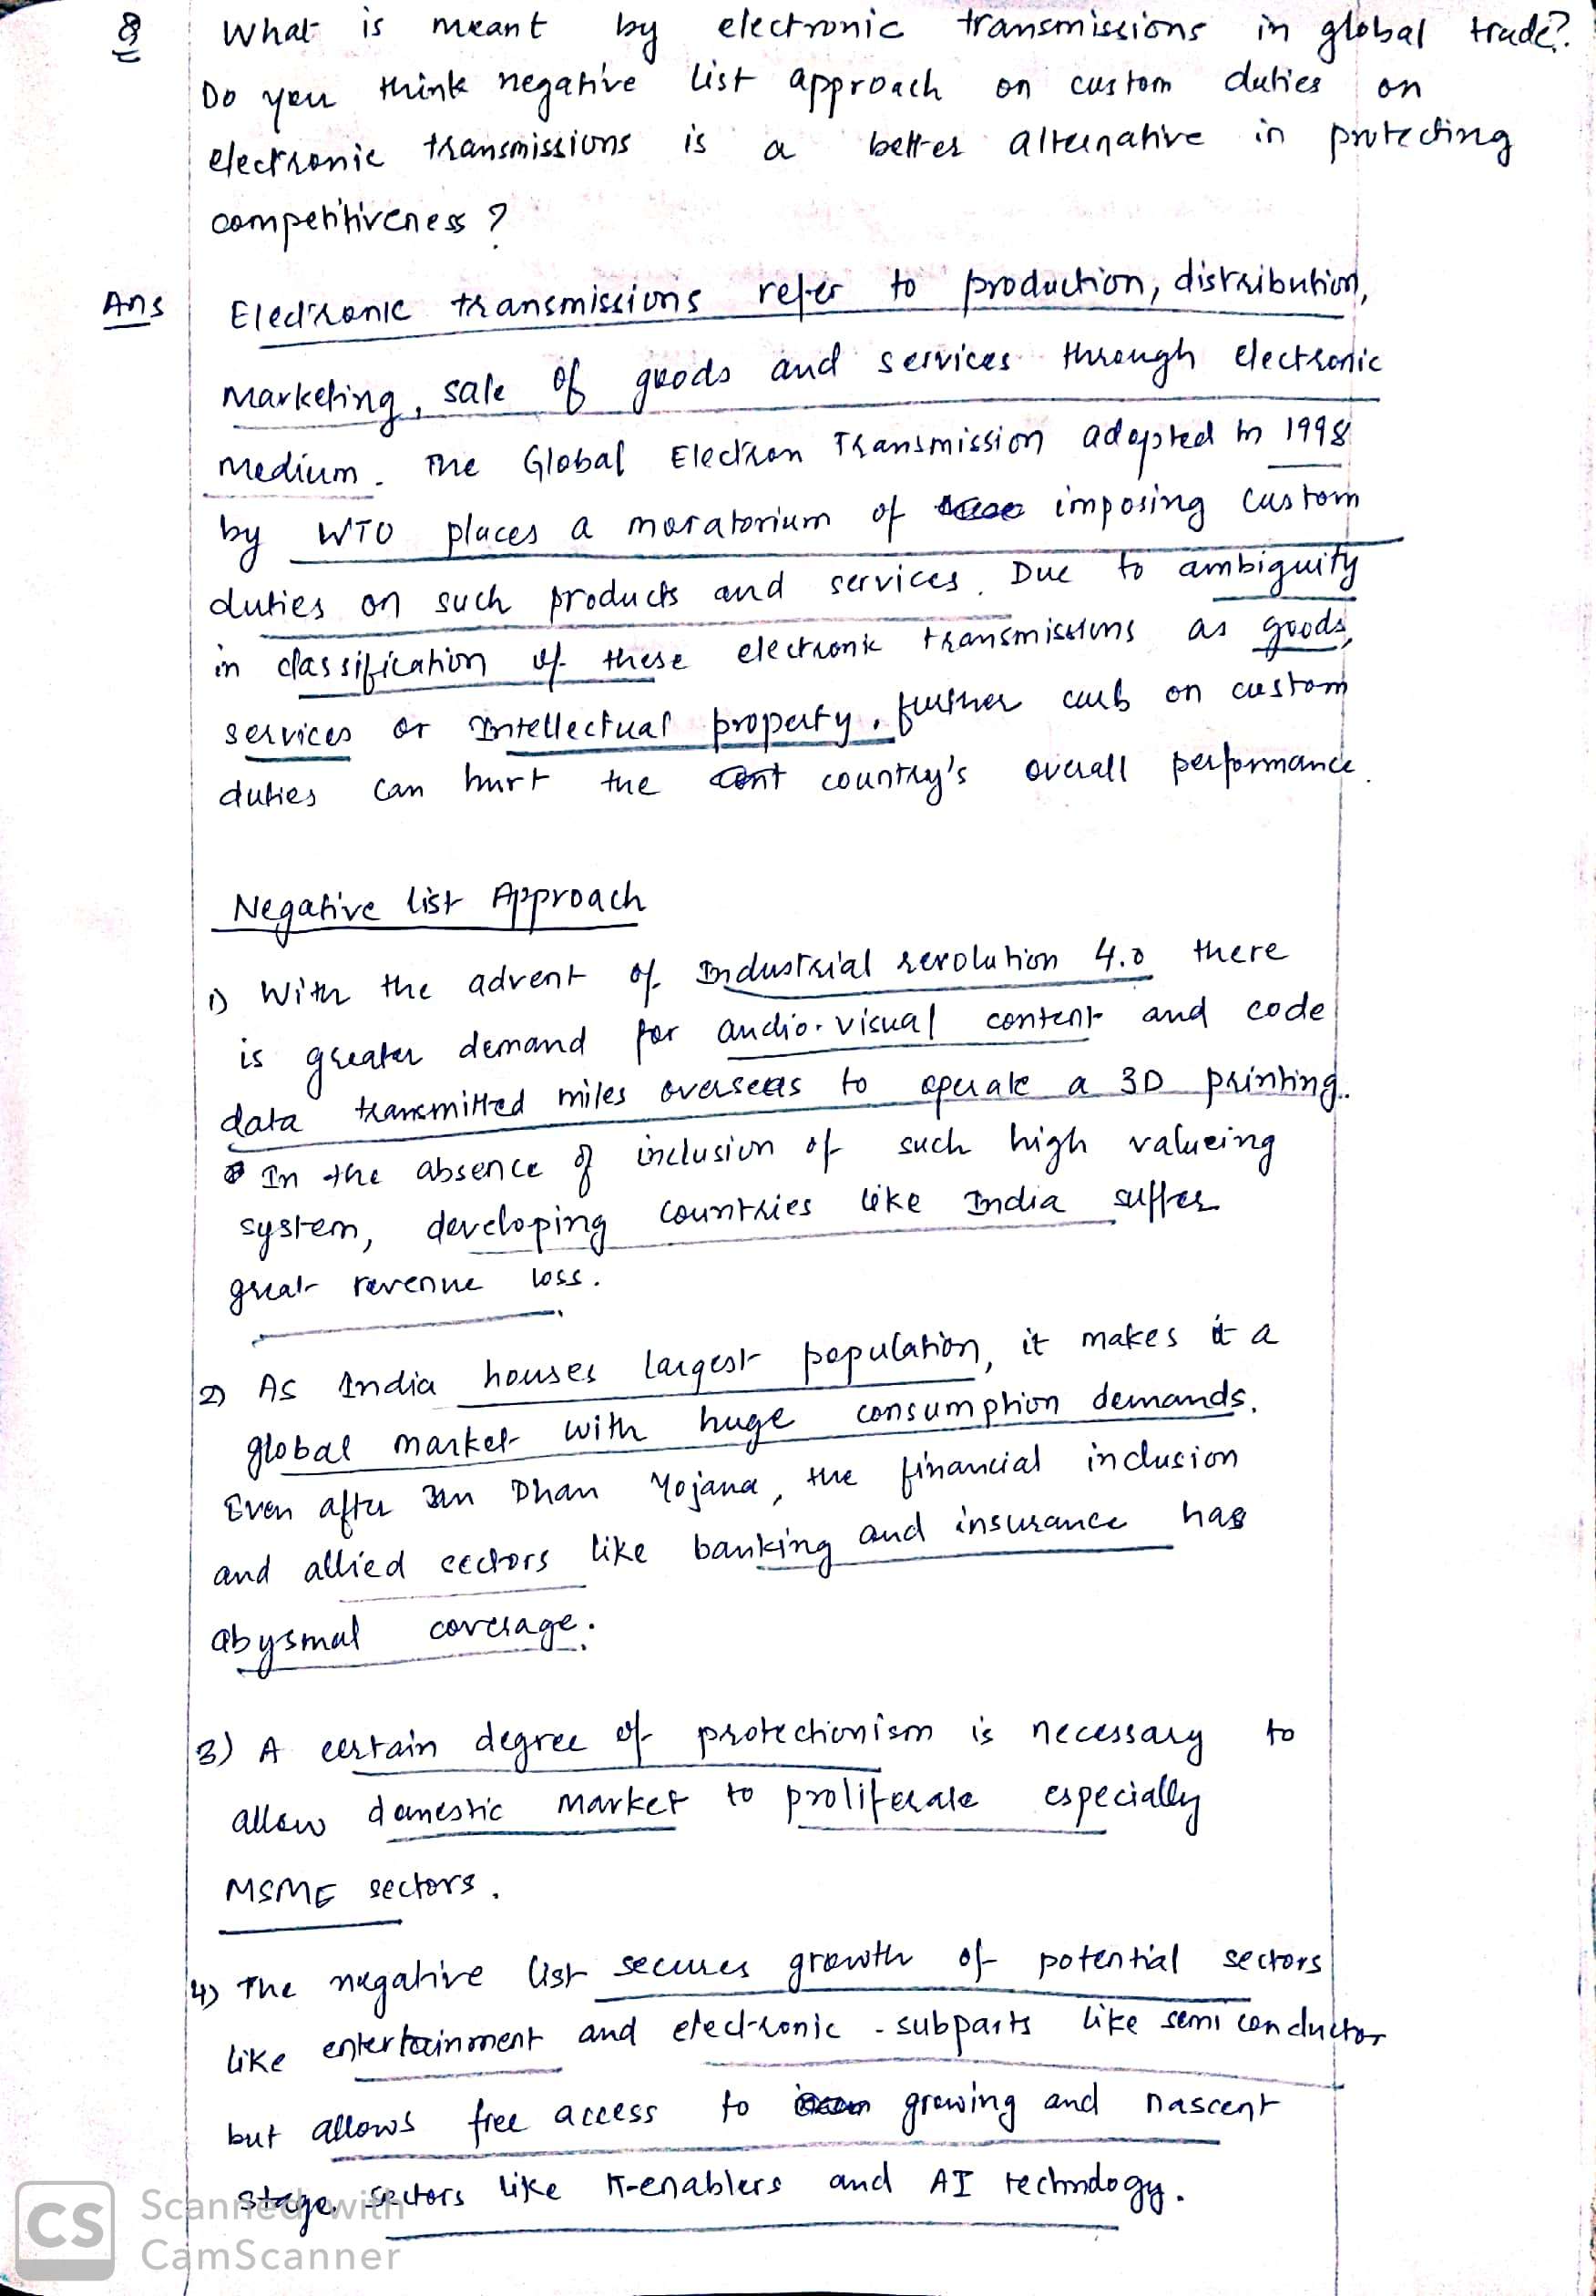 Q What is meant by electronic transmissions in global trade?
Do you think negative list approach on custom duties on
electronic transmissions is a better alternative in protecting
competitiveness ?
Ans Electronic transmissions refer to production, distribution,
marketing, sale of goods and services through electronic
medium. The Global Electron Transmission adopted in 1998
by WTO places a moratorium of imposing custom
duties on such products and services. Due to ambiguity
in classification of these electronic transmissions as goods,
services or Intellectual property, further curb on custom
duties can hurt the country's overall performance.
Negative list Approach
1) With the advent of Industrial revolution 4.0 there
is greater demand for audio-visual content and code
data transmitted miles overseas to operate a 3D printing.
In the absence of inclusion of such high valueing
system, developing countries like India suffer
great revenue loss.
2) As India houses largest population, it makes it a
global market with huge consumption demands.
Even after Jan Dhan Yojana, the financial inclusion
and allied sectors like banking and insurance has
abysmal coverage.
3) A certain degree of protectionism is necessary to
allow domestic market to proliferate especially
MSME sectors.
4) The negative list secures growth of potential sectors
like entertainment and electronic - subparts like semi conductor
but allows free access to growing and nascent
stage sectors like IT-enablers and AI technology.
CS Scanned with
CamScanner